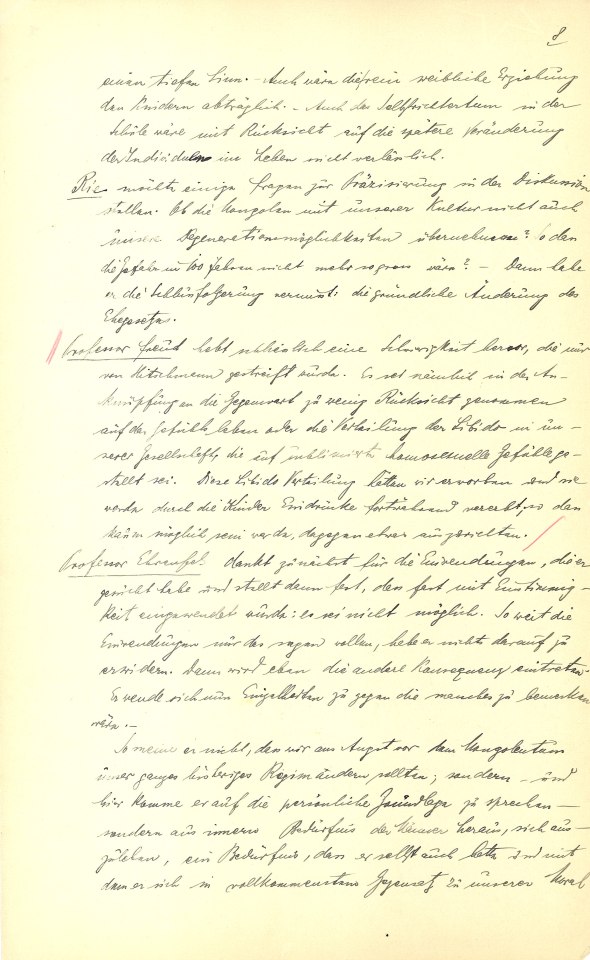 8
einen tiefen Sinn. – Auch wäre die rein weibliche Erziehung
den Kindern abträglich. – Auch das Selbstrichtertum in der
Schule wäre mit Rücksicht auf die spätere Veränderung
der Individuen im Leben nicht verlässlich.
Rie möchte einige Fragen zur Präzisierung in der Diskussion
stellen. Ob die Mongolen mit unserer Kultur nicht auch
unsere Degenerationsmöglichkeiten übernehmen? So dass
die Gefahr in 100 Jahren nicht mehr so gross wäre? – Dann habe
er die Schlussfolgerung vermisst: die gründliche Änderung des
Ehegesetzes.
Professor Freud hebt schliesslich eine Schwierigkeit hervor, die nur
von Hitschmann gestreift wurde. Es sei nämlich in der An-
knüpfung an die Gegenwart zu wenig Rücksicht genommen
auf das Gefühlsleben oder die Verteilung der Libido in un-
serer Gesellschaft, die auf sublimierte homosexuelle Gefühle ge-
stellt sei. Diese Libido Verteilung hätten wir erworben und sie
werde durch die Kinder Eindrücke fortwährend vererbt, so dass
kaum möglich sein werde, dagegen etwas auszurichten.
Professor Ehrenfels dankt zunächst für die Einwendungen, die er
gesucht habe und stellt dann fest, dass fast mit Einstimmig-
keit eingewendet wurde: es sei nicht möglich. So weit die
Einwendungen nur das sagen wollen, habe er nichts darauf zu
erwidern. Dann wird eben die andere Konsequenz eintreten.
Er wende sich nun Einzelheiten zu gegen die manches zu bemerken
wäre. –
So meine er nicht, dass wir aus Angst vor dem Mongolentum
unser ganzes bisheriges Regim ändern sollten; sondern – und
hier komme er auf die persönliche Grundlage zu sprechen –
sondern aus innerm Bedürfnis des Männer heraus, sich aus-
zuleben, ein Bedürfnis, das er selbst auch hatte und mit
dem er sich in vollkommenstem Gegensatz zu unserer Moral